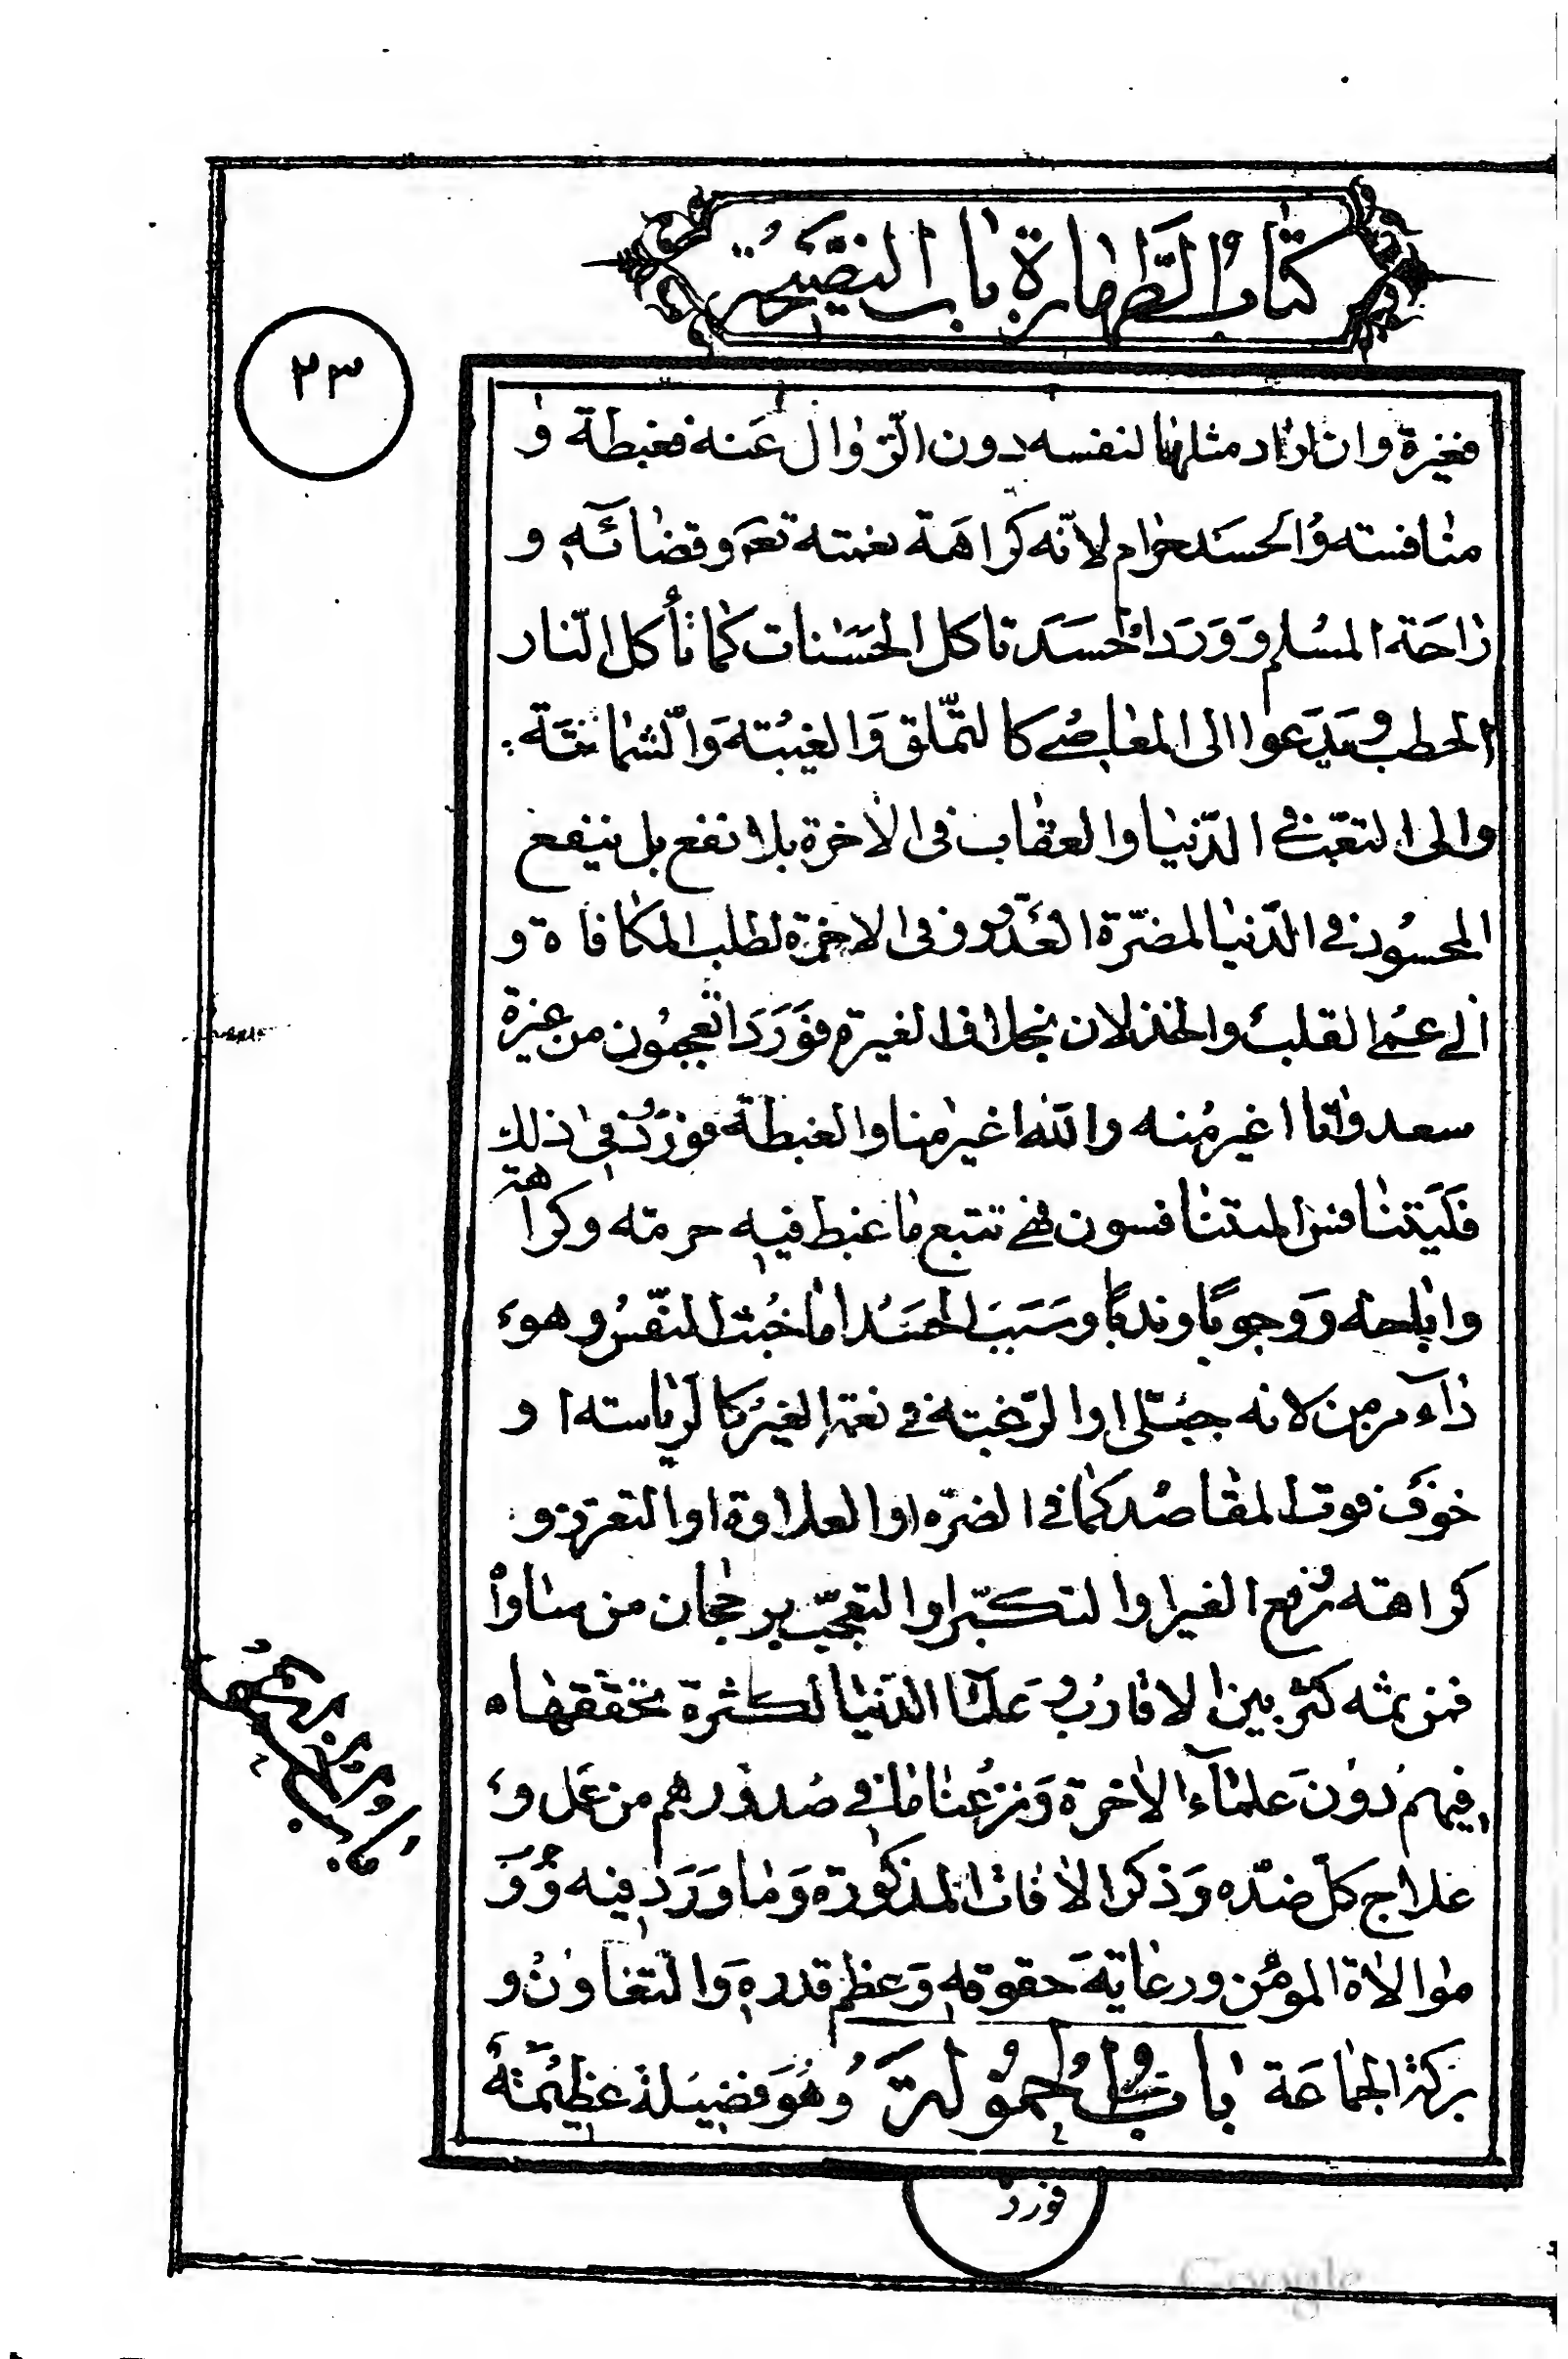 كتاب الطهارة باب النصيحة
٢٣
فغيرة وان اراد مثلها لنفسه دون الزوال عنه فغبطة و
منافسته والحسد حرام لانه كراهة نعمته تعم وقضائه و
راحة المسلم وورد الحسد تاكل الحسنات كما تأكل النار
الحطب ويدعوا الى المعاصي كالتملق والغيبته والشماتة
والى التعب في الدنيا والعقاب فى الاخرة بلا نفع بل ينفع
المحسود في الدنيا لمضرة العدو وفى الاخرة لطلب المكافاة و
الى عمى القلب والخذلان بخلاف الغيرة فورد اتعجبون من غيرة
سعد وانا اغير منه والله اغير منا والغبطة فورد فى ذلك
فليتنافس المتنافسون فهي تتبع ما غبط فيه حرمته وكراهة
واباحة ووجوبا وندبا وسبب الحسد اما خبث النفس وهو
داء مزمن لانه جبلى او الرغبته في نعمة الغير كالرياسته او
خوف فوت المقاصد كما في الضره او العداوة او التعزز و
كراهته ترفع الغير او التكبر او التعجب برجحان من ساوا
فمن ثمه كثر بين الاقارب وعلماء الدنيا لكثرة تحققها
فيهم دون علماء الاخرة ونزعنا ما في صدورهم من غل و
علاج كل ضده وذكر الافات المذكورة وما ورد فيه و
موالاة المومن ورعاية حقوقه وعظم قدره والتعاون و
بركة الجماعة باب الحمولة وهو فضيلة عظيمته
فورد